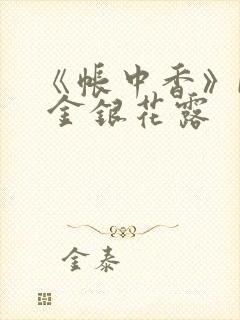 《帐中香》
金银花露
金泰